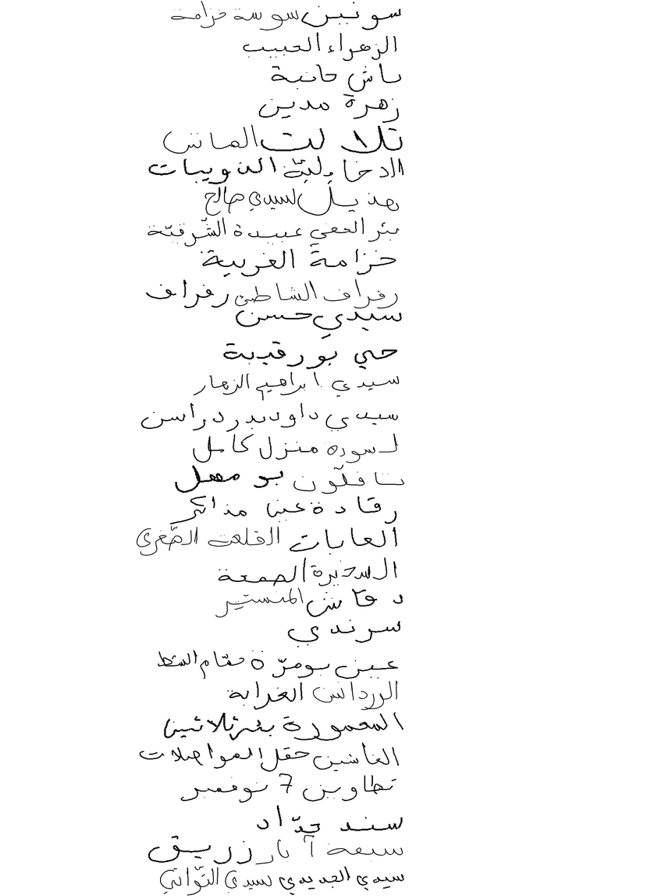 سونين سوسة خزامة
الزهراء الحبيب
باش حانبة
زهرة مدين
تلالت الماش
الدخايلية الذويبات
هذيل لسيدي صالح
بئر الحفي عبيدة الشرقيّة
خزامة الغربية
رفراف الشاطئ رفراف
سيدي حسن
حي بورقيبة
سيدي ابراهيم الزهار
سيدي داود بدر دراسن
لسودة منزل كامل
تافلّون بو مهل
رقادة عين مذاكر
الغابات القلعة الصّغرى
السخيرة الصمعة
دقاش المنستير
سرندي
عين بومرّة مقام الشط
الرداس الغرابة
المعمورة بئر ثلاثين
الغاشين حقل المواصلات
تطاوين 7 نوفمبر
سند حدّاد
سبعة آبار زريق
سيدي الجديدي لسيدي التّواتي